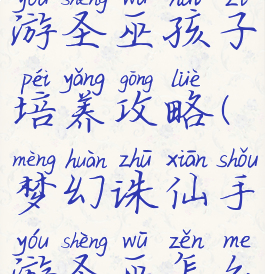 yóu shèng wū hái zi
游圣巫孩子
péi yǎng gōng lüè
培养攻略(
mèng huàn zhū xiān shǒu
梦幻诛仙手
yóu shèng wū zěn me
游圣巫怎么